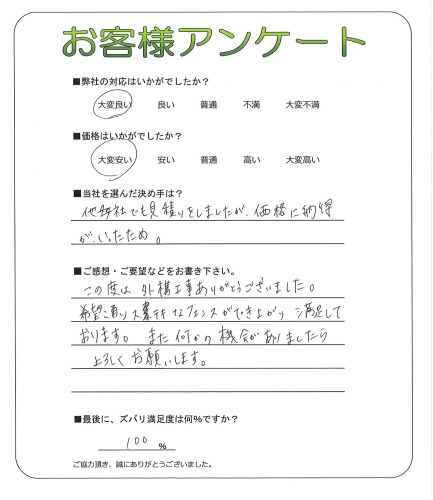 お客様アンケート
■弊社の対応はいかがでしたか？
大変良い 良い 普通 不満 大変不満
■価格はいかがでしたか？
大変安い 安い 普通 高い 大変高い
■当社を選んだ決め手は？
他数社でも見積りをしましたが、価格に納得
がいったため。
■ご感想・ご要望などをお書き下さい。
この度は外構工事ありがとうございました。
希望通りステキなフェンスができ上がり満足して
おります。また何かの機会がありましたら
よろしくお願いします。
■最後に、ズバリ満足度は何％ですか？
100 %
ご協力頂き、誠にありがとうございました。